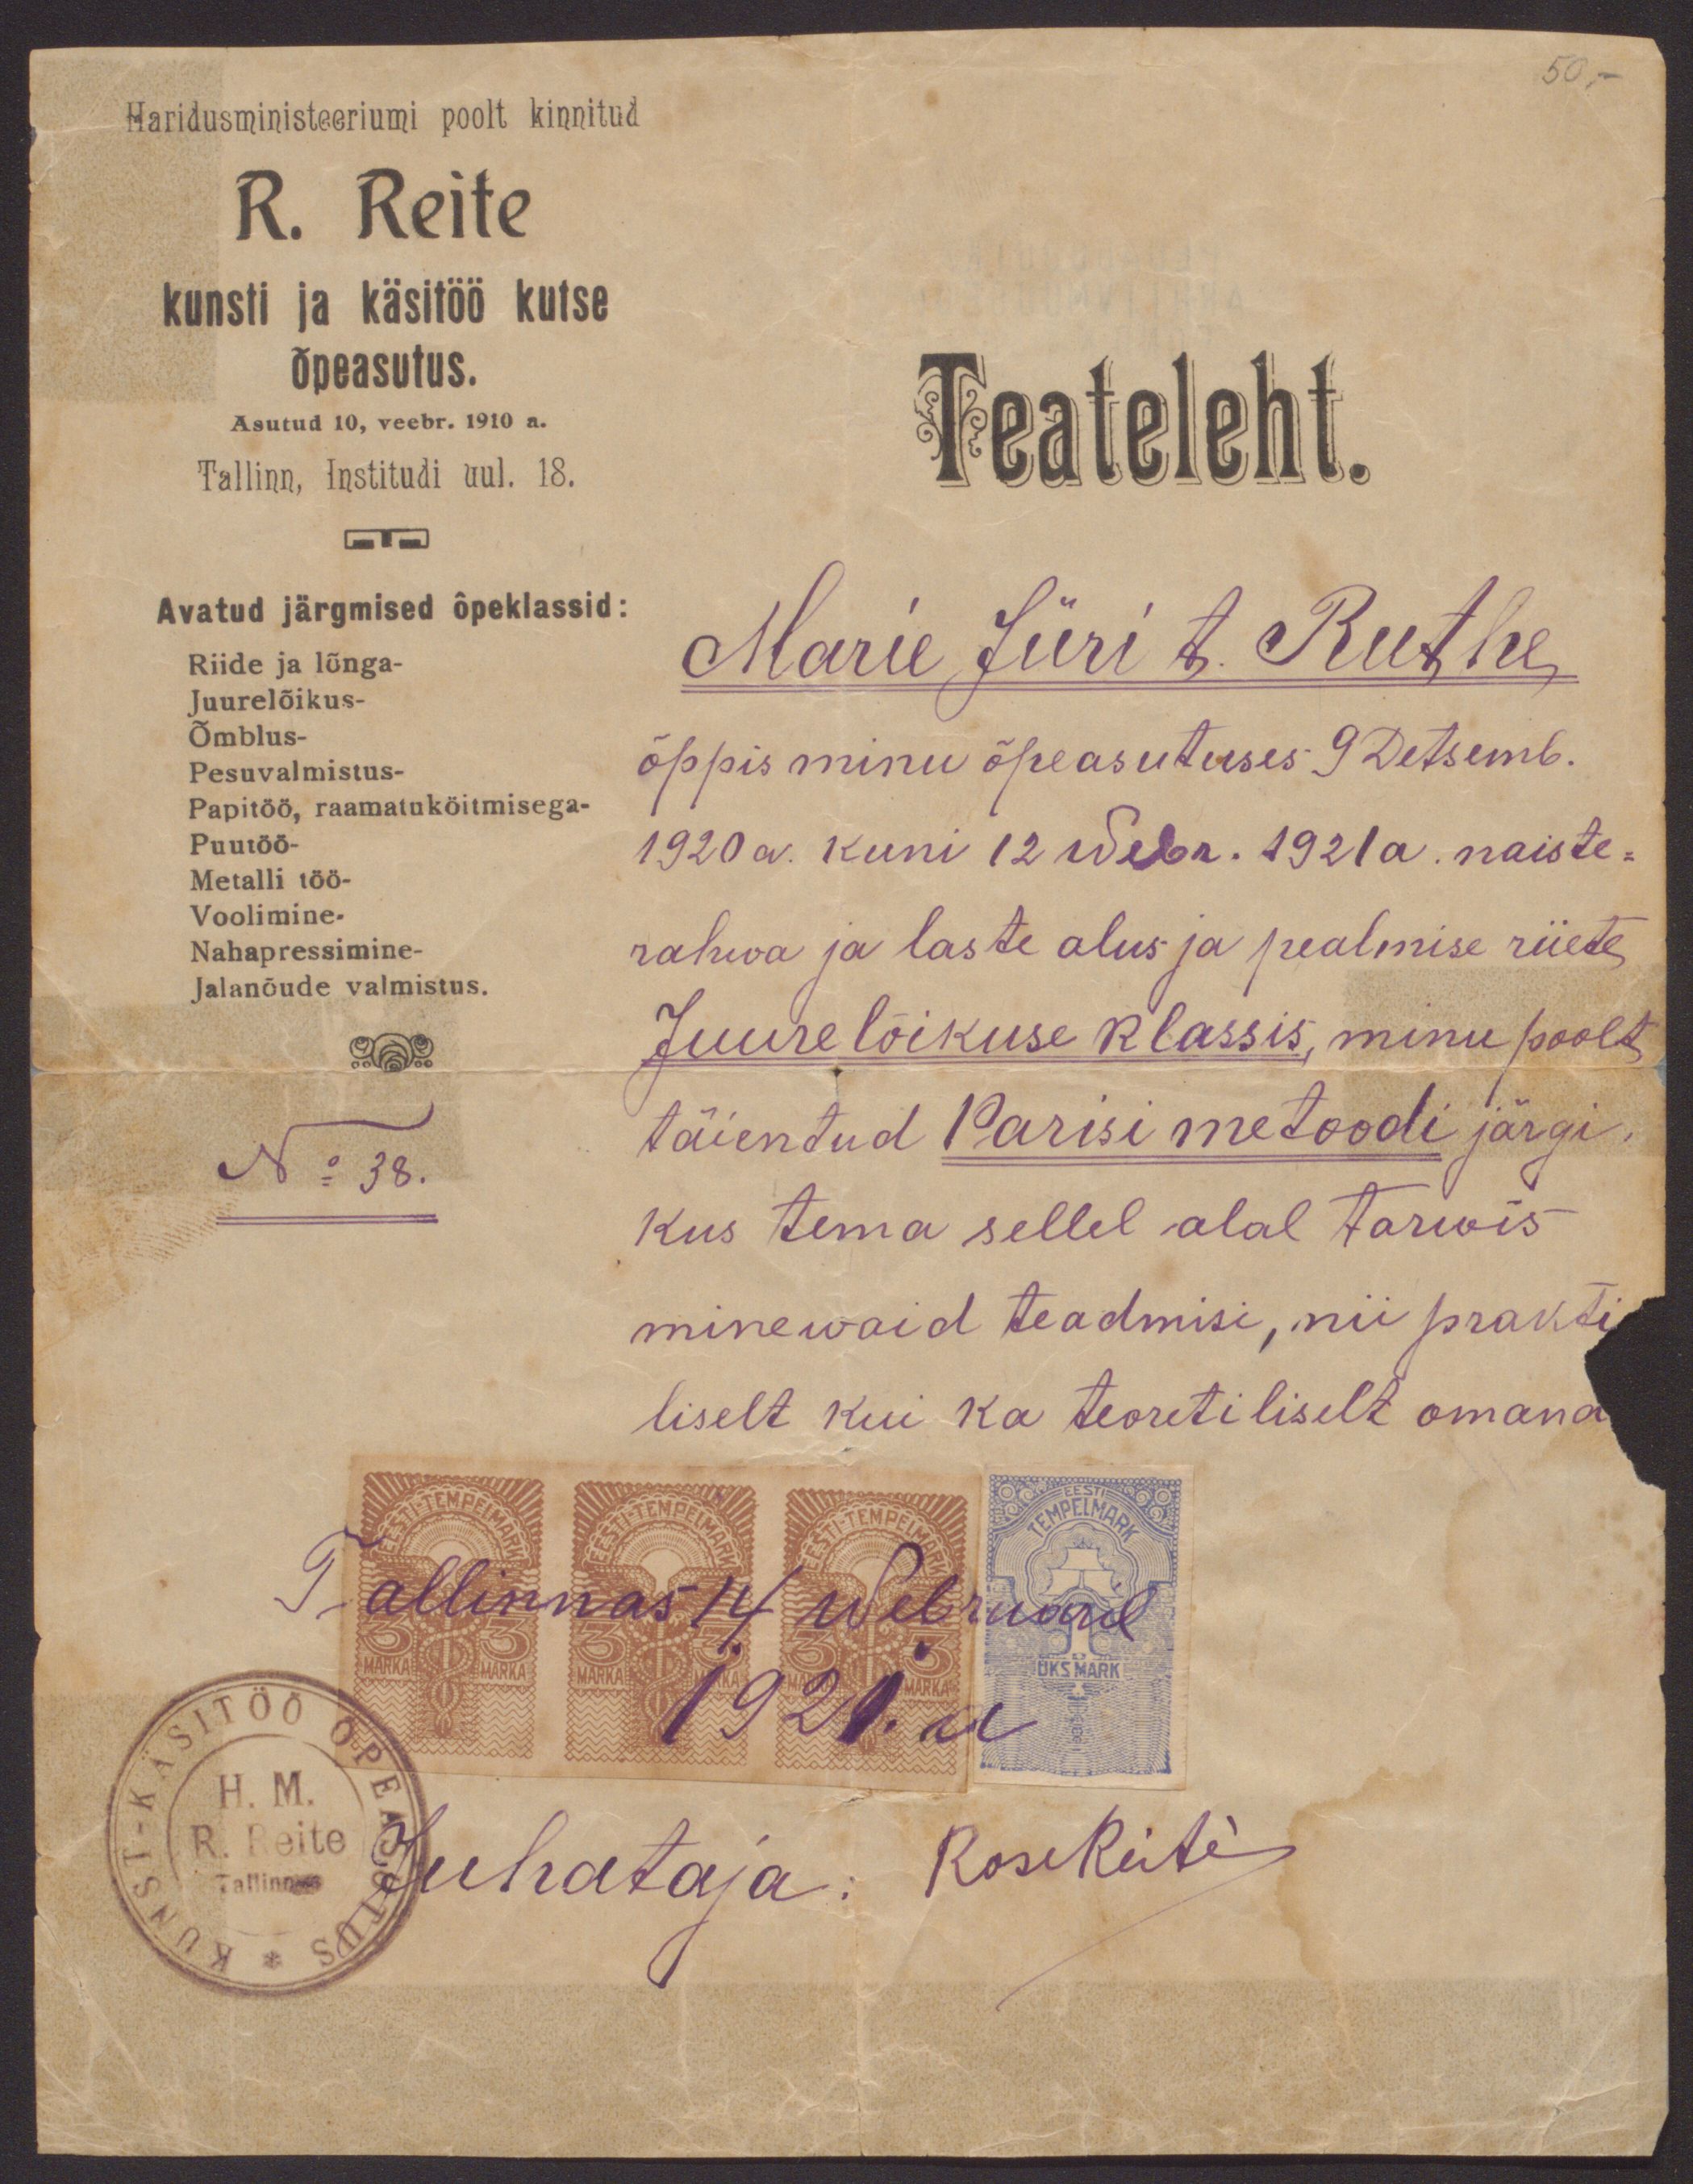 50,-
Haridusministeeriumi poolt kinnitud
R. Reite
kunsti ja käsitöö kutse
õpeasutus.
Asutud 10, veebr. 1910 a.
Tallinn, Institudi uul. 18.
Avatud järgmised ôpeklassid:
Riide ja lõnga-
Juurelõikus-
Õmblus-
Pesuvalmistus-
Papitöö, raamatuköitmisega-
Puutöö-
Metalli töö-
Voolimine-
Nahapressimine-
Jalanõude valmistus.
No 38.
Teateleht.
Marie Jüri t. Ruthe
õppis minu õpeasutuses 9 Detsemb.
1920 a. kuni 12 Webr. 1921 a. naiste=
rahwa ja laste alus ja pealmise riiete
Juurelõikuse klassis, minu poolt
täientud Parisi metoodi järgi,
kus tema sellel alal tarwis
minewaid teadmisi, nii prakti
liselt kui ka teoretiliselt omana
EESTI-TEMPELMARK
3 MARKA 3 MARKA
EESTI-TEMPELMARK
3 MARKA 3 MARKA
EESTI-TEMPELMARK
3 MARKA 3 MARKA
EESTI
TEMPELMARK
ÜKS MARK
Tallinnas 14 Webruaril
1921. a
KUNST-KÄSITÖÖ ÕPEASUTUS *
H. M.
R. Reite
Tallinnas
Juhataja: Rose Reite